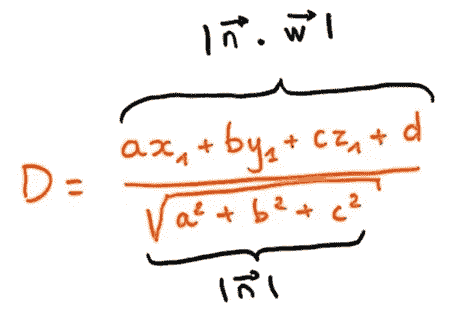 |n⃗ . w⃗|
ax₁ + by₁ + cz₁ + d
D =
√a² + b² + c²
|n⃗|